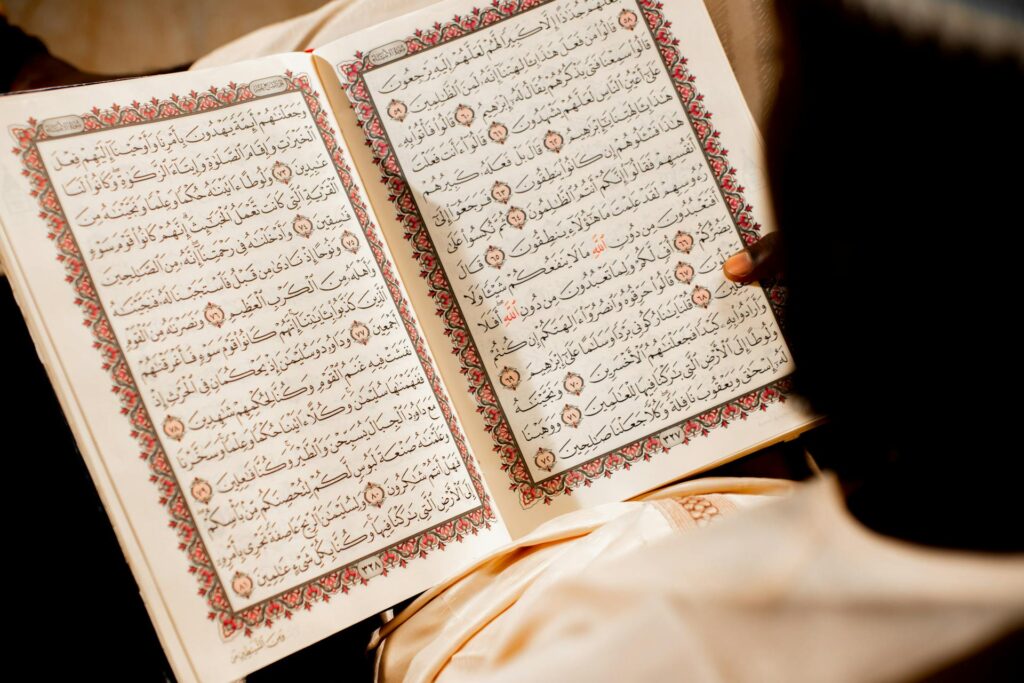 سُورَةُ الأَنبِيَاء
جُذَٰذًا إِلَّا كَبِيرًا لَّهُمْ لَعَلَّهُمْ إِلَيْهِ يَرْجِعُونَ
٥٨ قَالُوا۟ مَن فَعَلَ هَٰذَا بِـَٔالِهَتِنَآ إِنَّهُۥ لَمِنَ ٱلظَّٰلِمِينَ
٥٩ قَالُوا۟ سَمِعْنَا فَتًى يَذْكُرُهُمْ يُقَالُ لَهُۥٓ إِبْرَٰهِيمُ ٦٠ قَالُوا۟ فَأْتُوا۟ بِهِۦ
عَلَىٰٓ أَعْيُنِ ٱلنَّاسِ لَعَلَّهُمْ يَشْهَدُونَ ٦١ قَالُوٓا۟ ءَأَنتَ فَعَلْتَ
هَٰذَا بِـَٔالِهَتِنَا يَٰٓإِبْرَٰهِيمُ ٦٢ قَالَ بَلْ فَعَلَهُۥ كَبِيرُهُمْ
هَٰذَا فَسْـَٔلُوهُمْ إِن كَانُوا۟ يَنطِقُونَ ٦٣ فَرَجَعُوٓا۟ إِلَىٰٓ
أَنفُسِهِمْ فَقَالُوٓا۟ إِنَّكُمْ أَنتُمُ ٱلظَّٰلِمُونَ ٦٤ ثُمَّ نُكِسُوا۟ عَلَىٰ
رُءُوسِهِمْ لَقَدْ عَلِمْتَ مَا هَٰٓؤُلَآءِ يَنطِقُونَ ٦٥ قَالَ
أَفَتَعْبُدُونَ مِن دُونِ ٱللَّهِ مَا لَا يَنفَعُكُمْ شَيْـًٔا وَلَا
يَضُرُّكُمْ ٦٦ أُفٍّ لَّكُمْ وَلِمَا تَعْبُدُونَ مِن دُونِ ٱللَّهِ أَفَلَا
٦٧ قَالُوا۟ حَرِّقُوهُ وَٱنصُرُوٓا۟ ءَالِهَتَكُمْ إِن كُنتُمْ
٦٨ قُلْنَا يَٰنَارُ كُونِى بَرْدًا وَسَلَٰمًا عَلَىٰٓ إِبْرَٰهِيمَ
٦٩ وَأَرَادُوا۟ بِهِۦ كَيْدًا فَجَعَلْنَٰهُمُ ٱلْأَخْسَرِينَ ٧٠ وَنَجَّيْنَٰهُ
وَلُوطًا إِلَى ٱلْأَرْضِ ٱلَّتِى بَٰرَكْنَا فِيهَا لِلْعَٰلَمِينَ ٧١ وَوَهَبْنَا
لَهُۥٓ إِسْحَٰقَ وَيَعْقُوبَ نَافِلَةً وَكُلًّا جَعَلْنَا صَٰلِحِينَ ٧٢
٣٢٧
سُورَةُ الأَنبِيَاء
وَجَعَلْنَٰهُمْ أَئِمَّةً يَهْدُونَ بِأَمْرِنَا وَأَوْحَيْنَآ إِلَيْهِمْ فِعْلَ
ٱلْخَيْرَٰتِ وَإِقَامَ ٱلصَّلَوٰةِ وَإِيتَآءَ ٱلزَّكَوٰةِ وَكَانُوا۟ لَنَا
عَٰبِدِينَ ٧٣ وَلُوطًا ءَاتَيْنَٰهُ حُكْمًا وَعِلْمًا وَنَجَّيْنَٰهُ مِنَ
ٱلْقَرْيَةِ ٱلَّتِى كَانَت تَّعْمَلُ ٱلْخَبَٰٓئِثَ إِنَّهُمْ كَانُوا۟ قَوْمَ سَوْءٍ
فَٰسِقِينَ ٧٤ وَأَدْخَلْنَٰهُ فِى رَحْمَتِنَآ إِنَّهُۥ مِنَ ٱلصَّٰلِحِينَ
٧٥ وَنُوحًا إِذْ نَادَىٰ مِن قَبْلُ فَٱسْتَجَبْنَا لَهُۥ فَنَجَّيْنَٰهُ
وَأَهْلَهُۥ مِنَ ٱلْكَرْبِ ٱلْعَظِيمِ ٧٦ وَنَصَرْنَٰهُ مِنَ ٱلْقَوْمِ
ٱلَّذِينَ كَذَّبُوا۟ بِـَٔايَٰتِنَآ إِنَّهُمْ كَانُوا۟ قَوْمَ سَوْءٍ فَأَغْرَقْنَٰهُمْ
أَجْمَعِينَ ٧٧ وَدَاوُۥدَ وَسُلَيْمَٰنَ إِذْ يَحْكُمَانِ فِى ٱلْحَرْثِ إِذْ
نَفَشَتْ فِيهِ غَنَمُ ٱلْقَوْمِ وَكُنَّا لِحُكْمِهِمْ شَٰهِدِينَ ٧٨
فَفَهَّمْنَٰهَا سُلَيْمَٰنَ وَكُلًّا ءَاتَيْنَا حُكْمًا وَعِلْمًا وَسَخَّرْنَا
مَعَ دَاوُۥدَ ٱلْجِبَالَ يُسَبِّحْنَ وَٱلطَّيْرَ وَكُنَّا فَٰعِلِينَ ٧٩
وَعَلَّمْنَٰهُ صَنْعَةَ لَبُوسٍ لَّكُمْ لِتُحْصِنَكُم مِّنۢ بَأْسِكُمْ
فَهَلْ أَنتُمْ شَٰكِرُونَ ٨٠ وَلِسُلَيْمَٰنَ ٱلرِّيحَ عَاصِفَةً تَجْرِى بِأَمْرِهِۦٓ
إِلَى ٱلْأَرْضِ ٱلَّتِى بَٰرَكْنَا فِيهَا وَكُنَّا بِكُلِّ شَىْءٍ عَٰلِمِينَ ٨١
٣٢٨
وَمِنَ ٱلشَّيَٰطِينِ